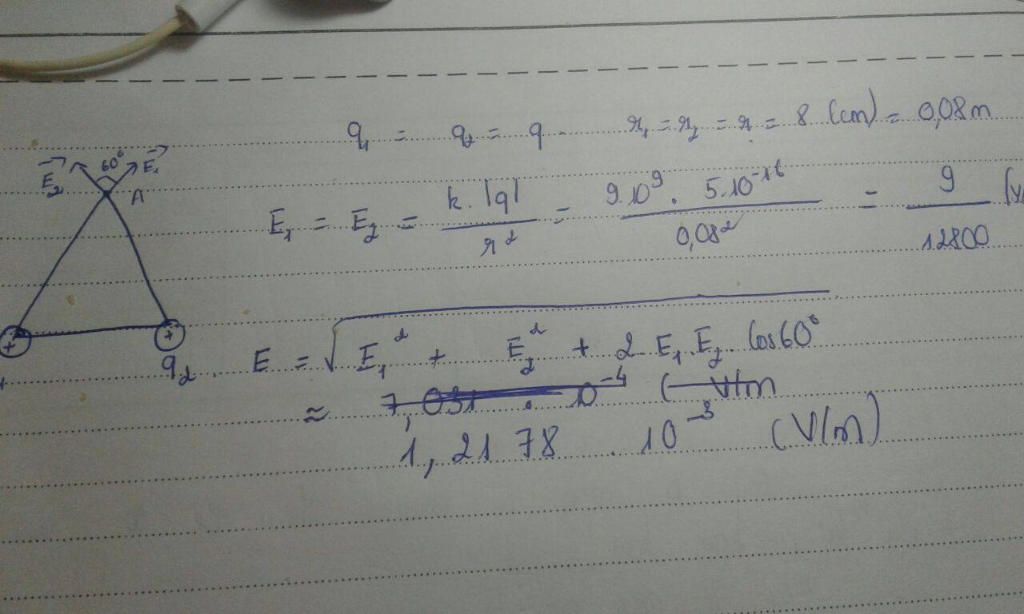 q₁ = q₂ = q. r₁ = r₂ = r = 8 (cm) = 0,08m
E₂ 60° E₁
A
E₁ = E₂ = k.|q| / r² = 9.10⁹ . 5.10⁻¹⁶ / 0,08² = 9 / 12800
+ +
q₂
E = √(E₁² + E₂² + 2 E₁.E₂.Cos60°)
≈ 7,031 . 10⁻⁴ (V/m
1,2178 . 10⁻³ (V/m)